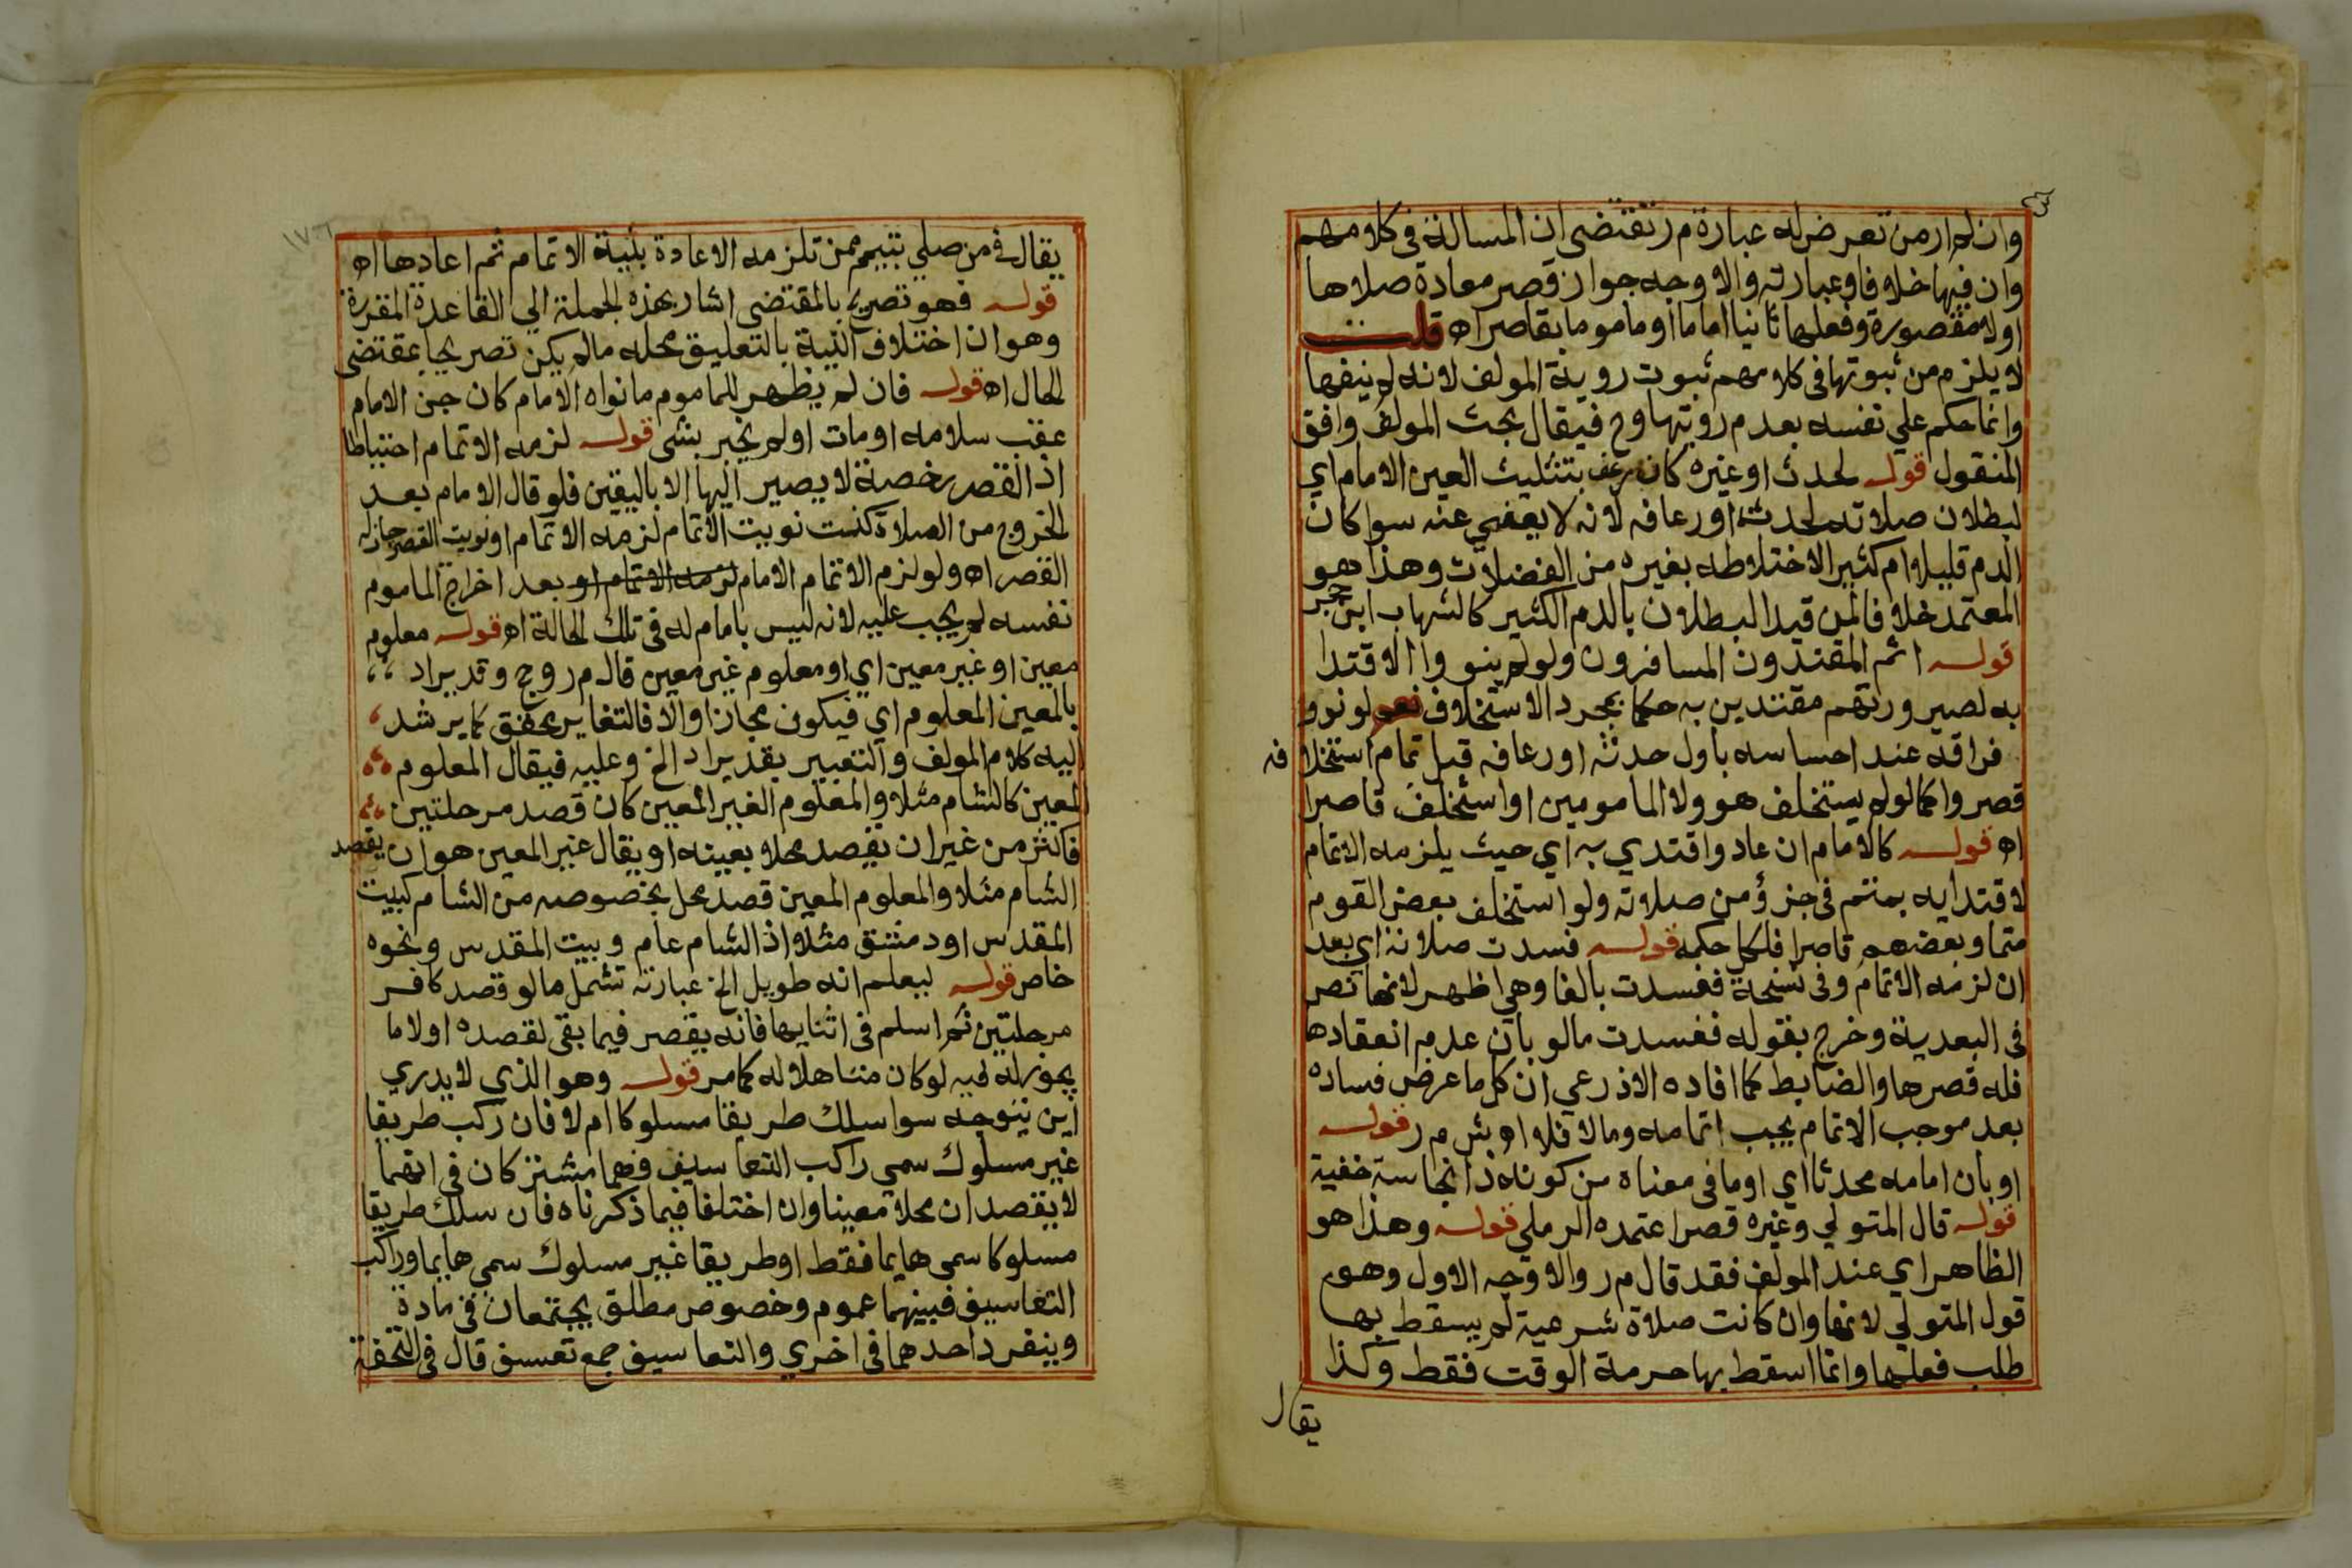 وان لم ار من تعرض له عبارة م ر تقتضى ان المسالة فى كلامهم
وان فيها خلافا وعبارته والاوجه جواز قصر معادة صلاها
اولا مقصورة وفعلها ثانيا اماما او ماموما بقاصر اه قلت
لا يلزم من ثبوتها فى كلامهم ثبوت روية المولف لانه لم ينفها
وانما حكم علي نفسه بعدم رويتها وح فيقال بحث المولف وافق
المنقول قوله لحدث او غيره كان رعف بتثليث العين الامام اي
لبطلان صلاته لحدثه او رعافه لانه لا يعفي عنه سوا كان
الدم قليلا ام كثيرا لاختلاطه بغيره من الفضلات وهذا هو
المعتمد خلافا لمن قيد البطلان بالدم الكثير كالشهاب ابن حجر
قوله اتم المقتدون المسافرون ولو لم ينووا الاقتدا
به لصيرورتهم مقتدين به حكما بمجرد الاستخلاف نعم لو نووا
فراقه عند احساسه باول حدثه او رعافه قبل تمام استخلافه
قصروا كما لو لم يستخلف هو ولا المامومين او استخلف قاصرا
اه قوله كالامام ان عاد واقتدي به اي حيث يلزمه الاتمام
لاقتدايه بمتم فى جزؤ من صلاته ولو استخلف بعض القوم
متما وبعضهم قاصرا فلكل حكمه قوله فسدت صلاته اي بعد
ان لزمه الاتمام وفى نسخة ففسدت بالفا وهي اظهر لانها نص
فى البعدية وخرج بقوله ففسدت مالو بان عدم انعقادها
فله قصرها والضابط كما افاده الاذرعي ان كل ما عرض فساده
بعد موجب الاتمام يجب اتمامه ومالا فلا اه بش م ر قوله
او بان امامه محدثا اي او ما فى معناه من كونه ذا نجاسة خفية
قوله قال المتولي وغيره قصر اعتمده الرملي قوله وهذا هو
الظاهر اي عند المولف فقد قال م ر والاوجه الاول وهو
قول المتولي لانها وان كانت صلاة شرعية لم يسقط بها
طلب فعلها وانما اسقط بها حرمة الوقت فقط وكذا
يقال
١٧٦
يقال فى من صلي بتيمم ممن تلزمه الاعادة بنية الاتمام ثم اعادها اه
قوله فهو تصريح بالمقتضى اشار بهذه الجملة الي القاعدة المقررة
وهو ان اختلاف النية بالتعليق محله ما لم يكن تصريحا بمقتضى
الحال اه قوله فان لم يظهر للماموم ما نواه الامام كان جن الامام
عقب سلامه او مات او لم يخبر بشى قوله لزمه الاتمام احتياطا
اذ القصر رخصة لا يصير اليها الا باليقين فلو قال الامام بعد
الخروج من الصلاة كنت نويت الاتمام لزمه الاتمام او نويت القصر جاز له
القصر اه ولو لزم الاتمام الامام لزمه الاتمام او بعد اخراج الماموم
نفسه لم يجب عليه لانه ليس بامام له فى تلك الحالة اه قوله معلوم
معين او غير معين اي او معلوم غير معين قال م ر وح وقد يراد
بالمعين المعلوم اي فيكون مجازا والا فالتغاير محقق كما يرشد
اليه كلام المولف والتعبير بقد يراد الخ وعليه فيقال المعلوم
المعين كالشام مثلا والمعلوم الغير المعين كان قصد مرحلتين
فاكثر من غير ان يقصد محلا بعينه او يقال غير المعين هو ان يقصد
الشام مثلا والمعلوم المعين قصد محل بخصوصه من الشام كبيت
المقدس او دمشق مثلا اذ الشام عام وبيت المقدس ونحوه
خاص قوله ليعلم انه طويل الخ عبارته تشمل مالو قصد كافر
مرحلتين ثم اسلم فى اثنايها فانه يقصر فيما بقى لقصده اولا ما
يجوز له فيه لو كان متاهلا له كما مر قوله وهو الذي لا يدري
اين يتوجه سوا سلك طريقا مسلوكا ام لا فان ركب طريقا
غير مسلوك سمي راكب التعاسيف فهما مشتركان فى انهما
لا يقصدان محلا معينا وان اختلفا فيما ذكرناه فان سلك طريقا
مسلوكا سمى هايما فقط او طريقا غير مسلوك سمي هايما وراكب
التعاسيف فبينهما عموم وخصوص مطلق يجتمعان فى مادة
وينفرد احدهما فى اخري والتعاسيف جمع تعسف قال فى التحفة